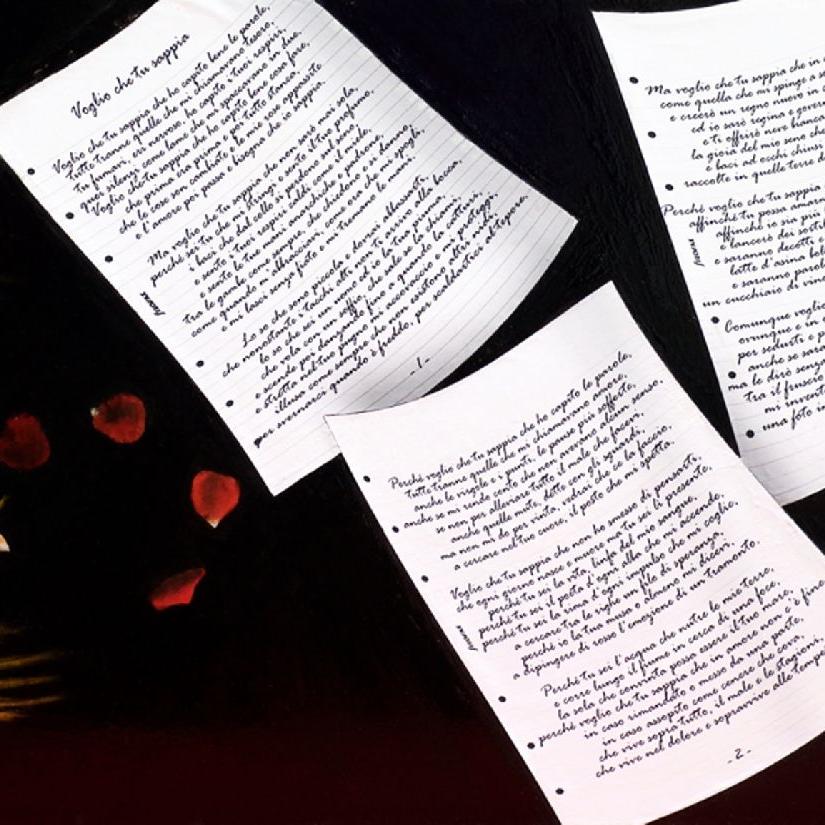 Voglio che tu sappia
Voglio che tu sappia che ho capito bene le parole,
tutte tranne quelle che mi chiamavano tesoro,
tu fumavi, eri nervoso, ho capito i tuoi respiri,
quei silenzi come lance che si spezzano in due.
Voglio che tu sappia che ho capito bene cosa fare,
che prima era prima e poi tutto stanca,
che le cose son cambiate, le mie rose appassite
e l'amore poi passa e bisogna che io sappia.
Ma voglio che tu sappia che non sarò mai sola,
perché sei tu che mi stringi e sento il tuo profumo,
i baci che dal collo si perdono sul seno,
e sento i tuoi respiri caldi come il miele,
sento le tue mani
tra le gambe come sempre, che chiedono e si donano,
come quando mi abbracciavi, come ora che mi spogli,
e mi baci senza fiato e mi tremano le mani.
Lo so che sono piccola e dovrei alzarmi,
che nonostante i tacchi alti non ti arrivo alla bocca,
lo so che sei un
che vola con un soffio, che sale
e scende poi danzando fino a quando lo catturi,
e stretta nel tuo pugno mi accartoccio e mi proteggi,
illusa come sempre che non esistono altri modi,
per svenarci quando è freddo, per scaldarti e intrepore.
-1-
Perché voglio che tu sappia che ho capito le parole,
tutte tranne quelle che mi chiamavano amore,
anche le virgole e i punti, le pause più sofferte,
anche se mi rendo conto che non avevano alcun senso,
se non per alleviare tutto il male che facevi,
anche quelle mute, dette con gli sguardi,
ma non mi do per vinta, vedrai che ce la faccio,
a cercare nel tuo cuore, il posto che mi spetta.
Voglio che tu sappia che non ho smesso di pensarti,
che ogni giorno nasce e muore ma tu sei lì presente,
perché tu sei la vita, linfa del mio sangue,
perché tu sei il poeta d'ogni alba che mi accende,
perché tu sei la rima d'ogni impulso che mi coglie,
a cercare tra le righe un filo di speranza,
perché so la tua musa o almeno mi dicevi,
a dipingere di rosso l'emozione di un tramonto.
Perché tu sei l'acqua che nutre le mie terre,
e corre lungo il fiume in cerca di una foce,
la sola che convinta possa essere il tuo mare,
perché voglio che tu sappia che in amore non c'è fine
in caso rimandato o messo da una parte,
in caso assopito come cenere che cova,
che vive sopra tutto, il male e le stagioni,
che vive nel dolore e sopravvive alle tempe
-2-
Ma voglio che tu sappia che in
come quella che mi spinge a
e creerò un regno nuovo in
ed io sarò regina e
e ti offrirò nere
la gioia del mio seno che
e baci ad occhi chiusi
raccolte in quelle terre d
Perché voglio che tu sappia
affinché tu possa amarm
affinché sia più
e lancerò dei
e saranno decotti e
latte d'asina
e saranno parol
un cucchiaio di vin
Comunque voglio
ovunque e in
per sedurti e p
anche se sar
ma le dirò senz
tra il fruscio
mi invent
una foto i